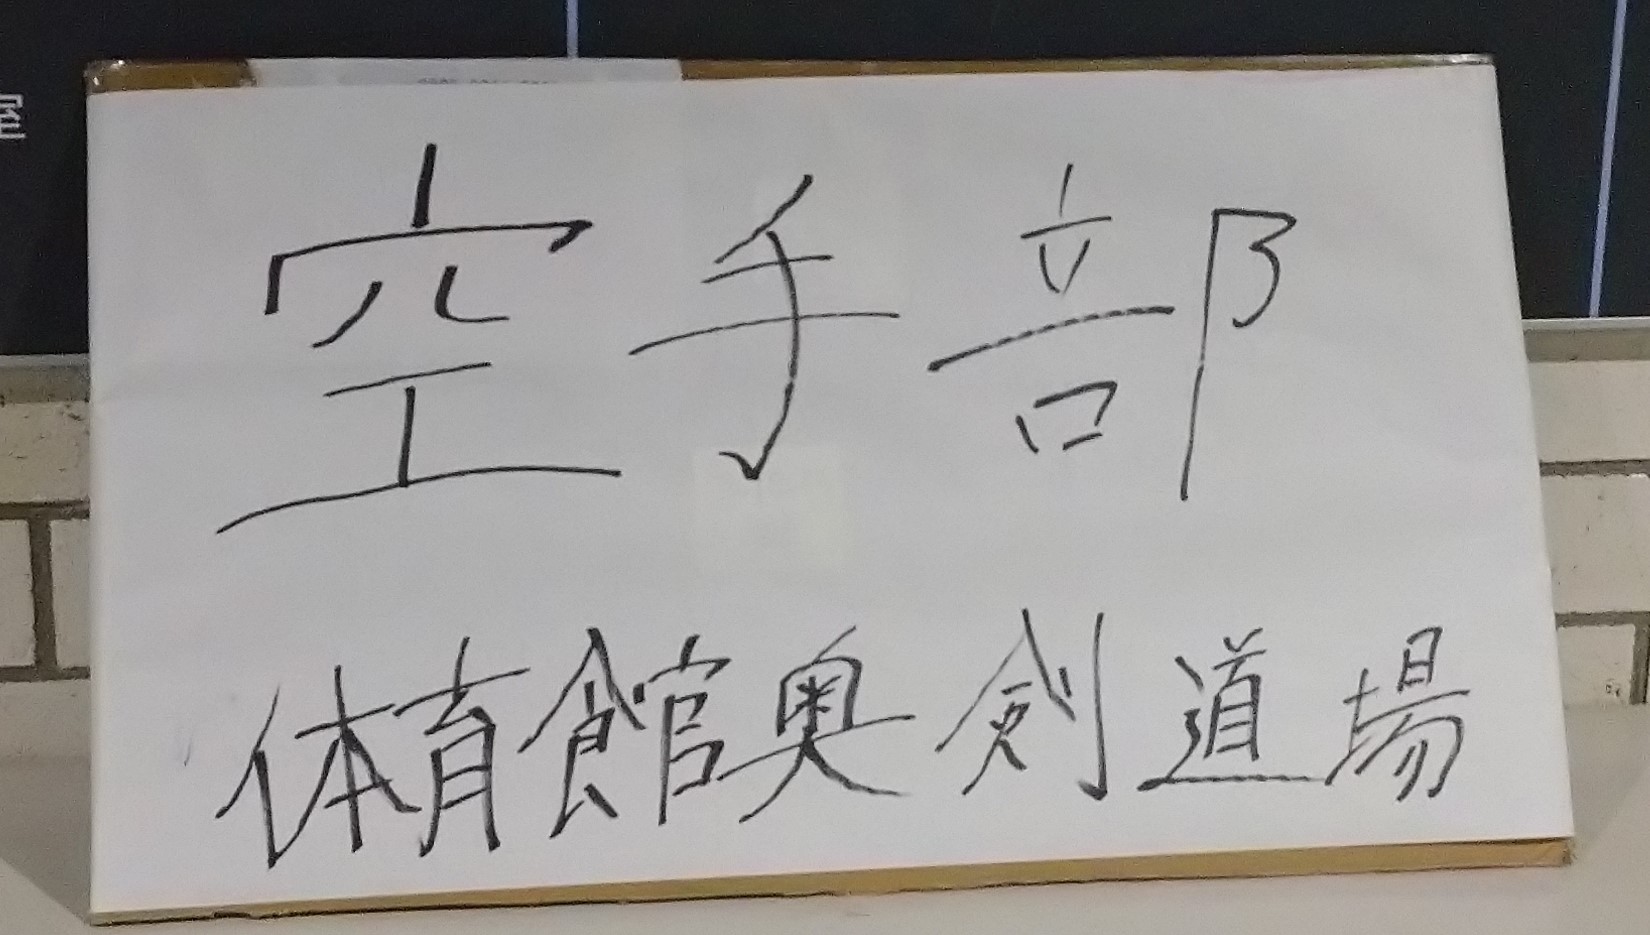 空手部
体育館奥剣道場